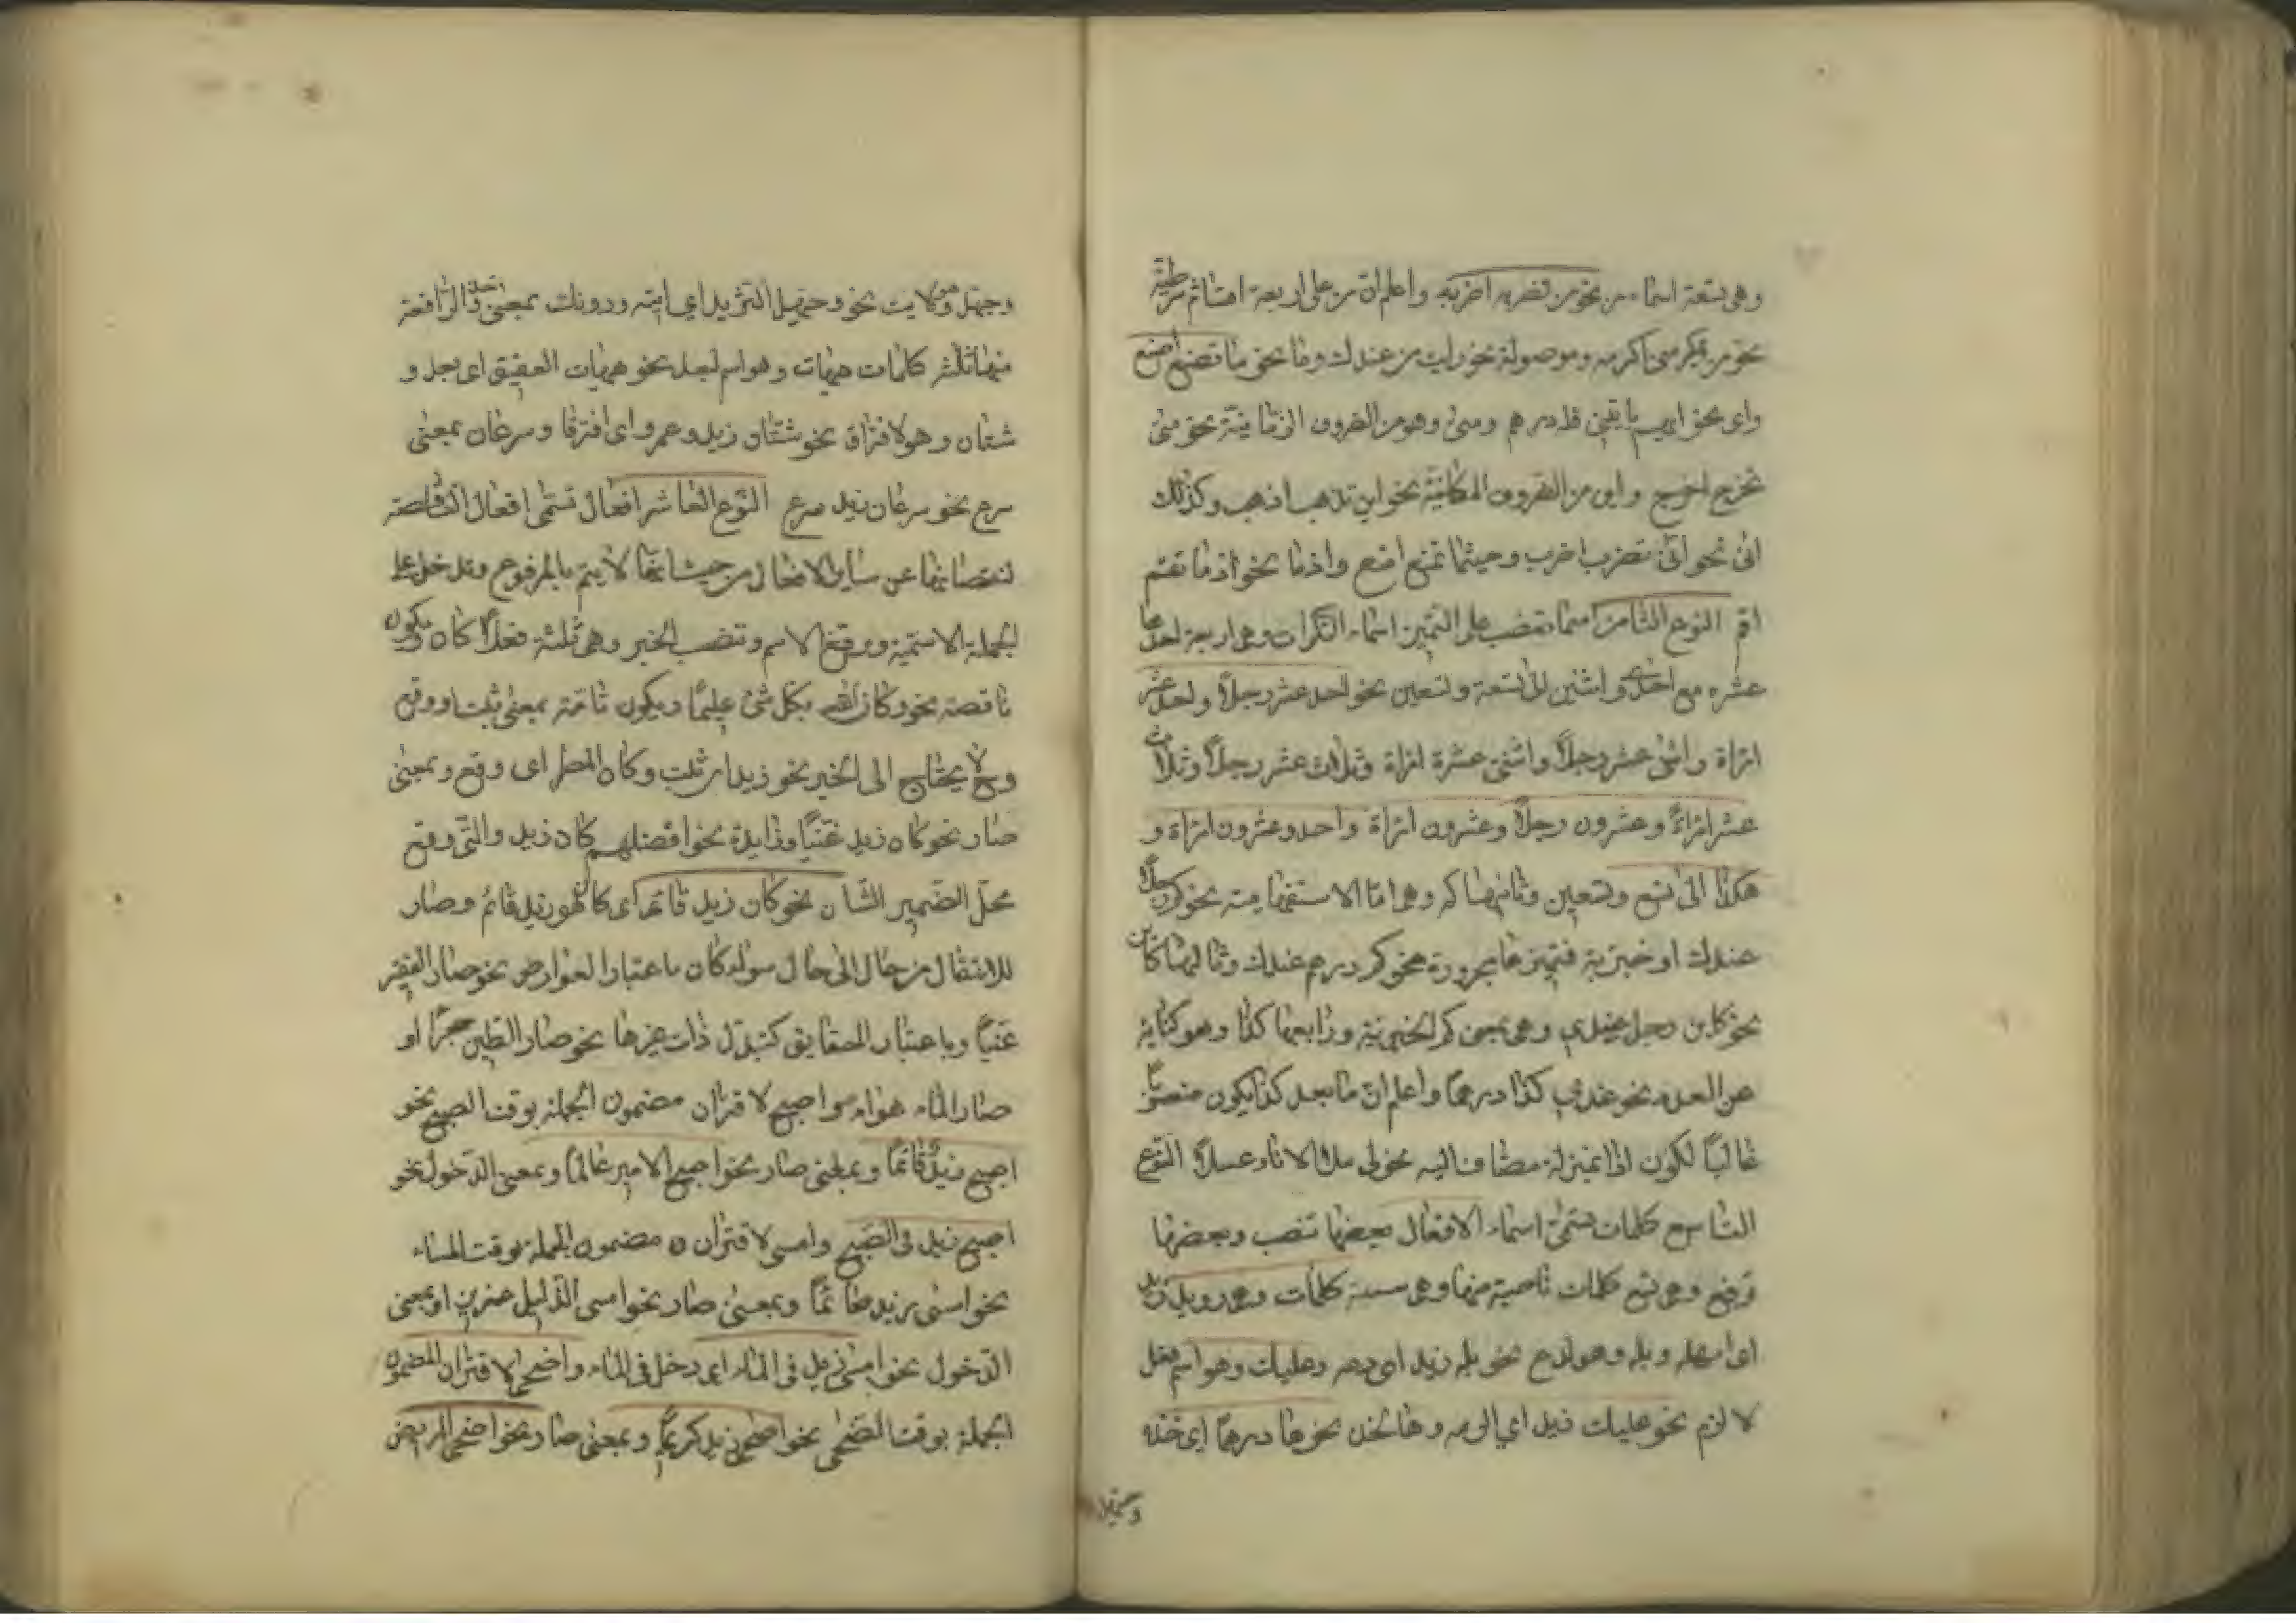 وهى تسعة اسماء من نحو من تضربه اضربه واعلم ان من على اربعة اقسام شرطية
نحو من يكرمنى اكرمه وموصولة نحو رايت من عندك وما نحو ما تصنع اصنع
واى نحو ايهم ياتينى فله درهم ومتى وهو من الظروف الزمانية نحو متى
تخرج اخرج واين من الظروف المكانية نحو اين تذهب اذهب وكذلك
انى نحو انى تضرب اضرب وحيثما تمنع امنع واذما نحو اذما تقم
اقم النوع الثامن اسما تنصب على التميز اسماء النكرات وهى اربعة احدها
عشره مع احدى واثنين الى تسعة وتسعين نحو احد عشر رجلاً واحد عشر
امراة واثنى عشر رجلاً واثنتى عشرة امراة وثلاث عشر رجلاً وثلاث
عشر امراة وعشرون رجلاً وعشرون امراة واحد وعشرون امراة و
هكذا الى تسع وتسعين وثانيها كم وهى اما الاستفهامية نحو كم رجلاً
عندك او خبرية فتميزها مجرورة نحو كم درهم عندك وثالثها كاين
نحو كاين رجل عندى وهى بمعنى كم الخبرية ورابعها كذا وهو كناية
عن العدد نحو عندى كذا درهما واعلم ان ما بعد كذا يكون منصوباً
غالباً لكون اذا بمنزلة مضاف اليه نحو لى ملا الاناء عسلاً النوع
التاسع كلمات تسمى اسماء الافعال بعضها تنصب وبعضها
ترفع وهى تسع كلمات ناصبة منها وهى ستة كلمات وهى رويد زيد
اى امهله وبله وهو لدع نحو بله زيد اى دعه وعليك وهو اسم فعل
لا لزم نحو عليك زيد اى الزمه وها لخذ نحو ها درهما اى خذه
وحيهل
وحيهل وهو لايت نحو وحيهل الثريد اى ايته ودونك بمعنى خذ والرافعة
منها ثلث كلمات هيهات وهو اسم لبعد نحو هيهات العقيق اى بعد و
شتان وهو لافتراق نحو شتان زيد وعمرو اى افترقا وسرعان بمعنى
سرع نحو سرعان زيد سرع النوع العاشر افعال تسمى افعال الناقصة
لنقصانها عن ساير الافعال من حيث انها لا يتم بالمرفوع وتدخل على
الجملة الاسمية وترفع الاسم وتنصب الخبر وهى ثلثة فعلاً كان ويكون
ناقصة نحو وكان الله بكل شئ عليمًا ويكون تامة بمعنى ثبت او وقع
وح لا يحتاج الى الخبر نحو زيد ارثبت وكان المطر اى وقع وبمعنى
صار نحو كان زيد غنيًا وزايدة نحو افضلهم كان زيد والتى وقع
محل الضمير الشان نحو كان زيد قائم اى كان هو زيد قائم وصار
للانتقال من حال الى حال سواء كان باعتبار العوارض نحو صار الفقير
غنيًا وباعتبار الحقايق كتبدل ذات غيرها نحو صار الطين حجرًا او
صار الماء هواء واصبح لاقتران مضمون الجملة بوقت الصبح نحو
اصبح زيد قائمًا وبمعنى صار نحو اصبح الامير عالمًا وبمعنى الدخول نحو
اصبح زيد فى الصبح وامسى لاقتران مضمون الجملة بوقت المساء
نحو امسى زيد صائمًا وبمعنى صار نحو امسى الذليل عزيز او بمعنى
الدخول نحو امسى زيد فى الماء اى دخل فى الماء واضحى لاقتران المضمون
الجملة بوقت الضحى نحو اضحى زيد كريمًا وبمعنى صار نحو اضحى المريض